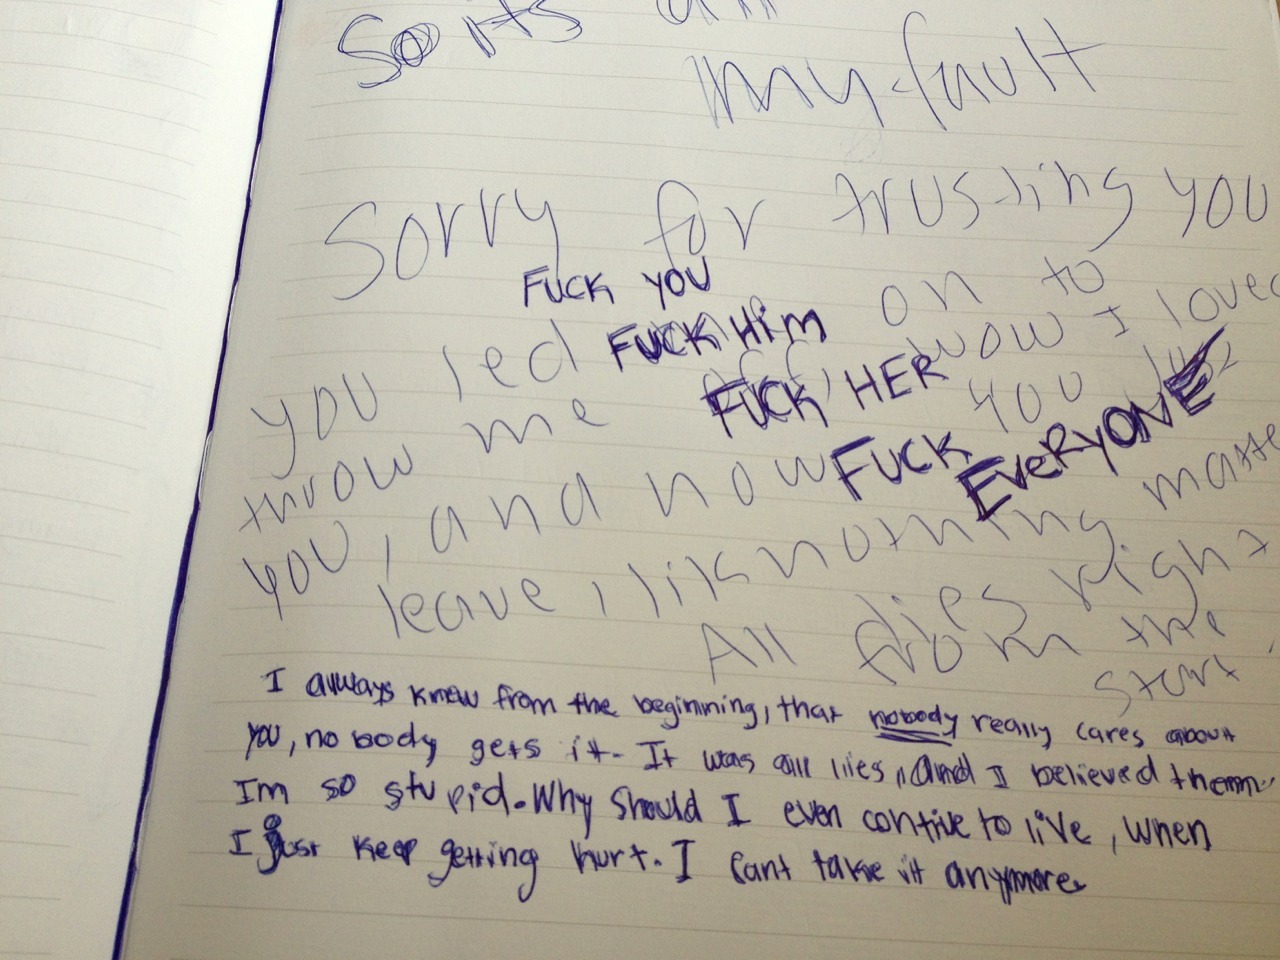 So its all
my fault
Sorry for trusting you
FUCK YOU
you led on to
FUCK HIM
throw me wow I loved
FUCK HER
you, and now you
FUCK EVERYONE
leave, like nothing
All lies right
from the
start
I always knew from the beginning, that nobody really cares about
you, nobody gets it. It was all lies, and I believed them
Im so stupid. Why should I even contive to live, when
I just keep getting hurt. I cant take it anymore